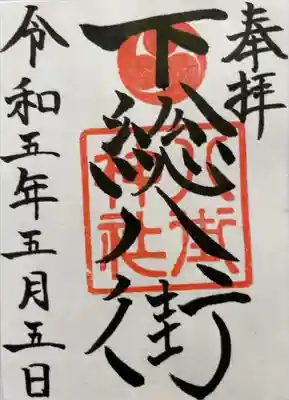 奉拝
下総八街
八街神社
令和五年五月五日